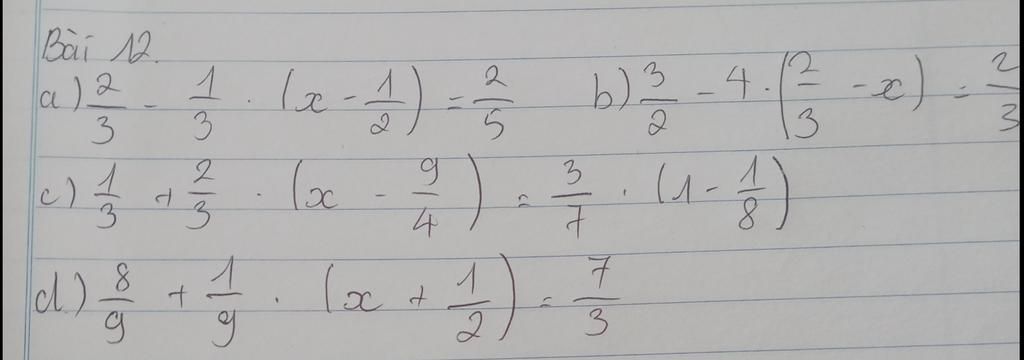 Bài 12.
a) 2/3 - 1/3 . (x - 1/2) = 2/5 b) 3/2 - 4 . (2/3 - x) = 2/3
c) 1/3 + 2/3 . (x - 9/4) = 3/7 . (1 - 1/8)
d.) 8/9 + 1/9 . (x + 1/2) = 7/3